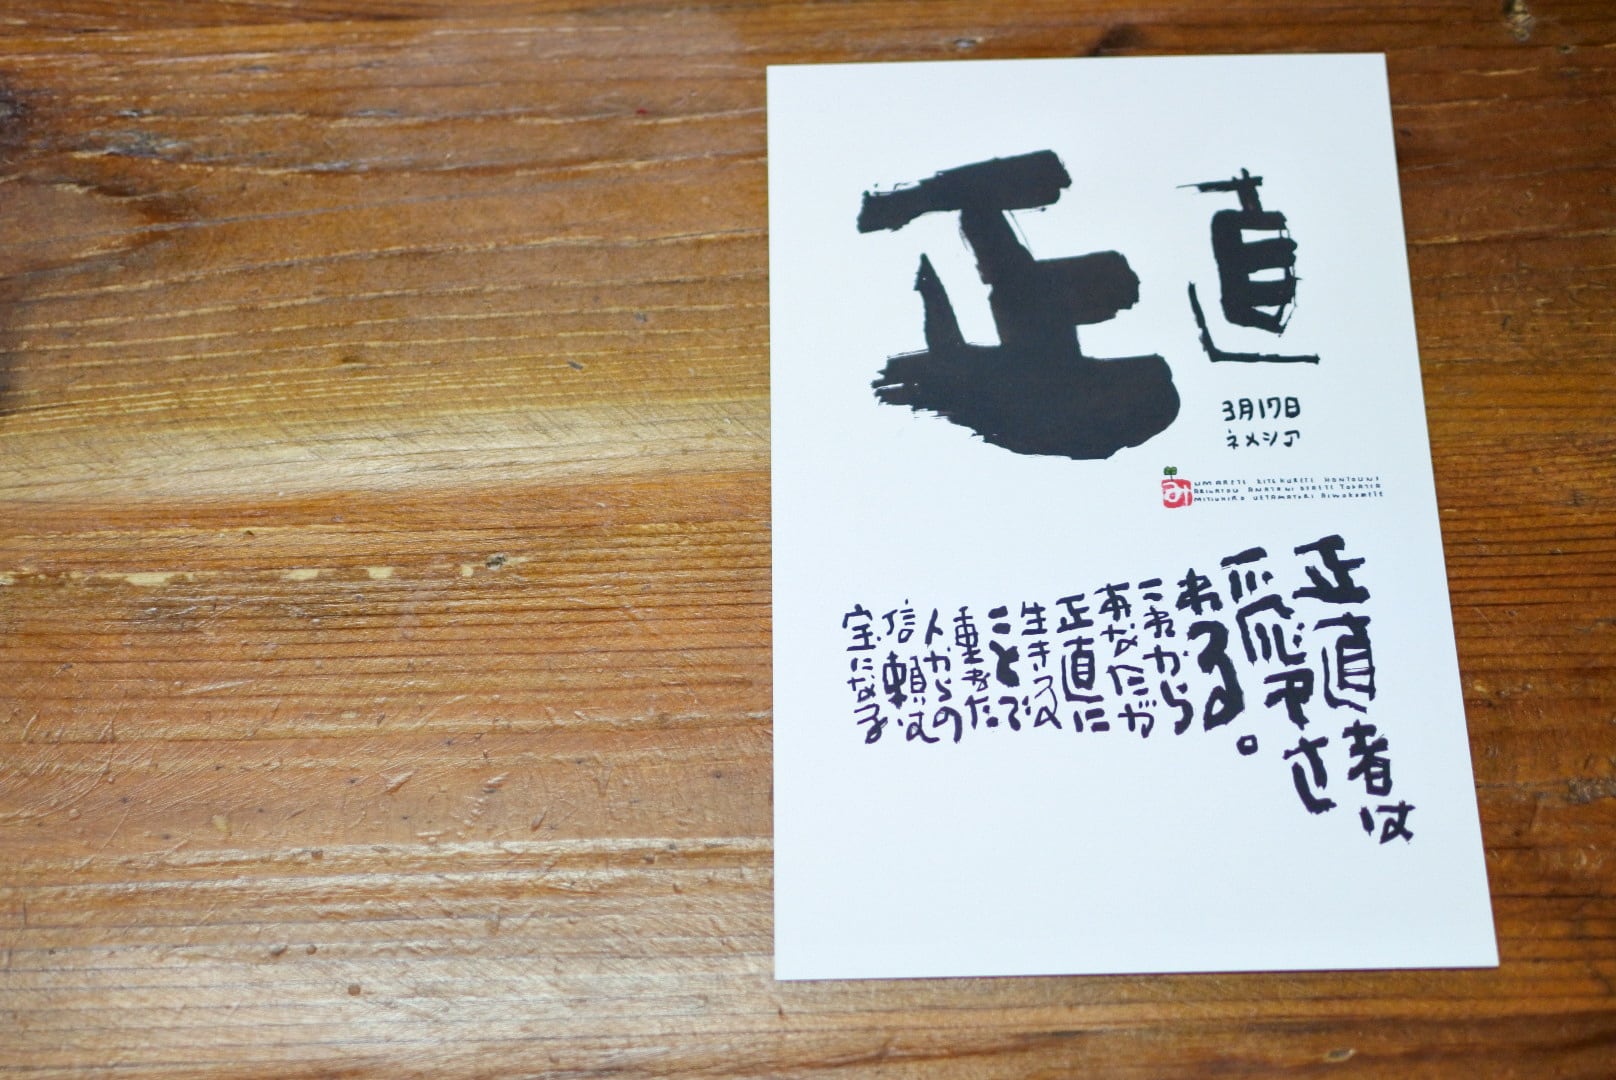 正直
3月17日
ネメシア
み
UMARETE KITEKURETE HONTOUNI
ARIGATOU ANATANI DEAETE YOKATTA
MITSUHIRO
正直者は
愛さ
れる。
これから
あなたが
正直に
生きる
ことで
重ねた
人からの
信頼は
宝になる